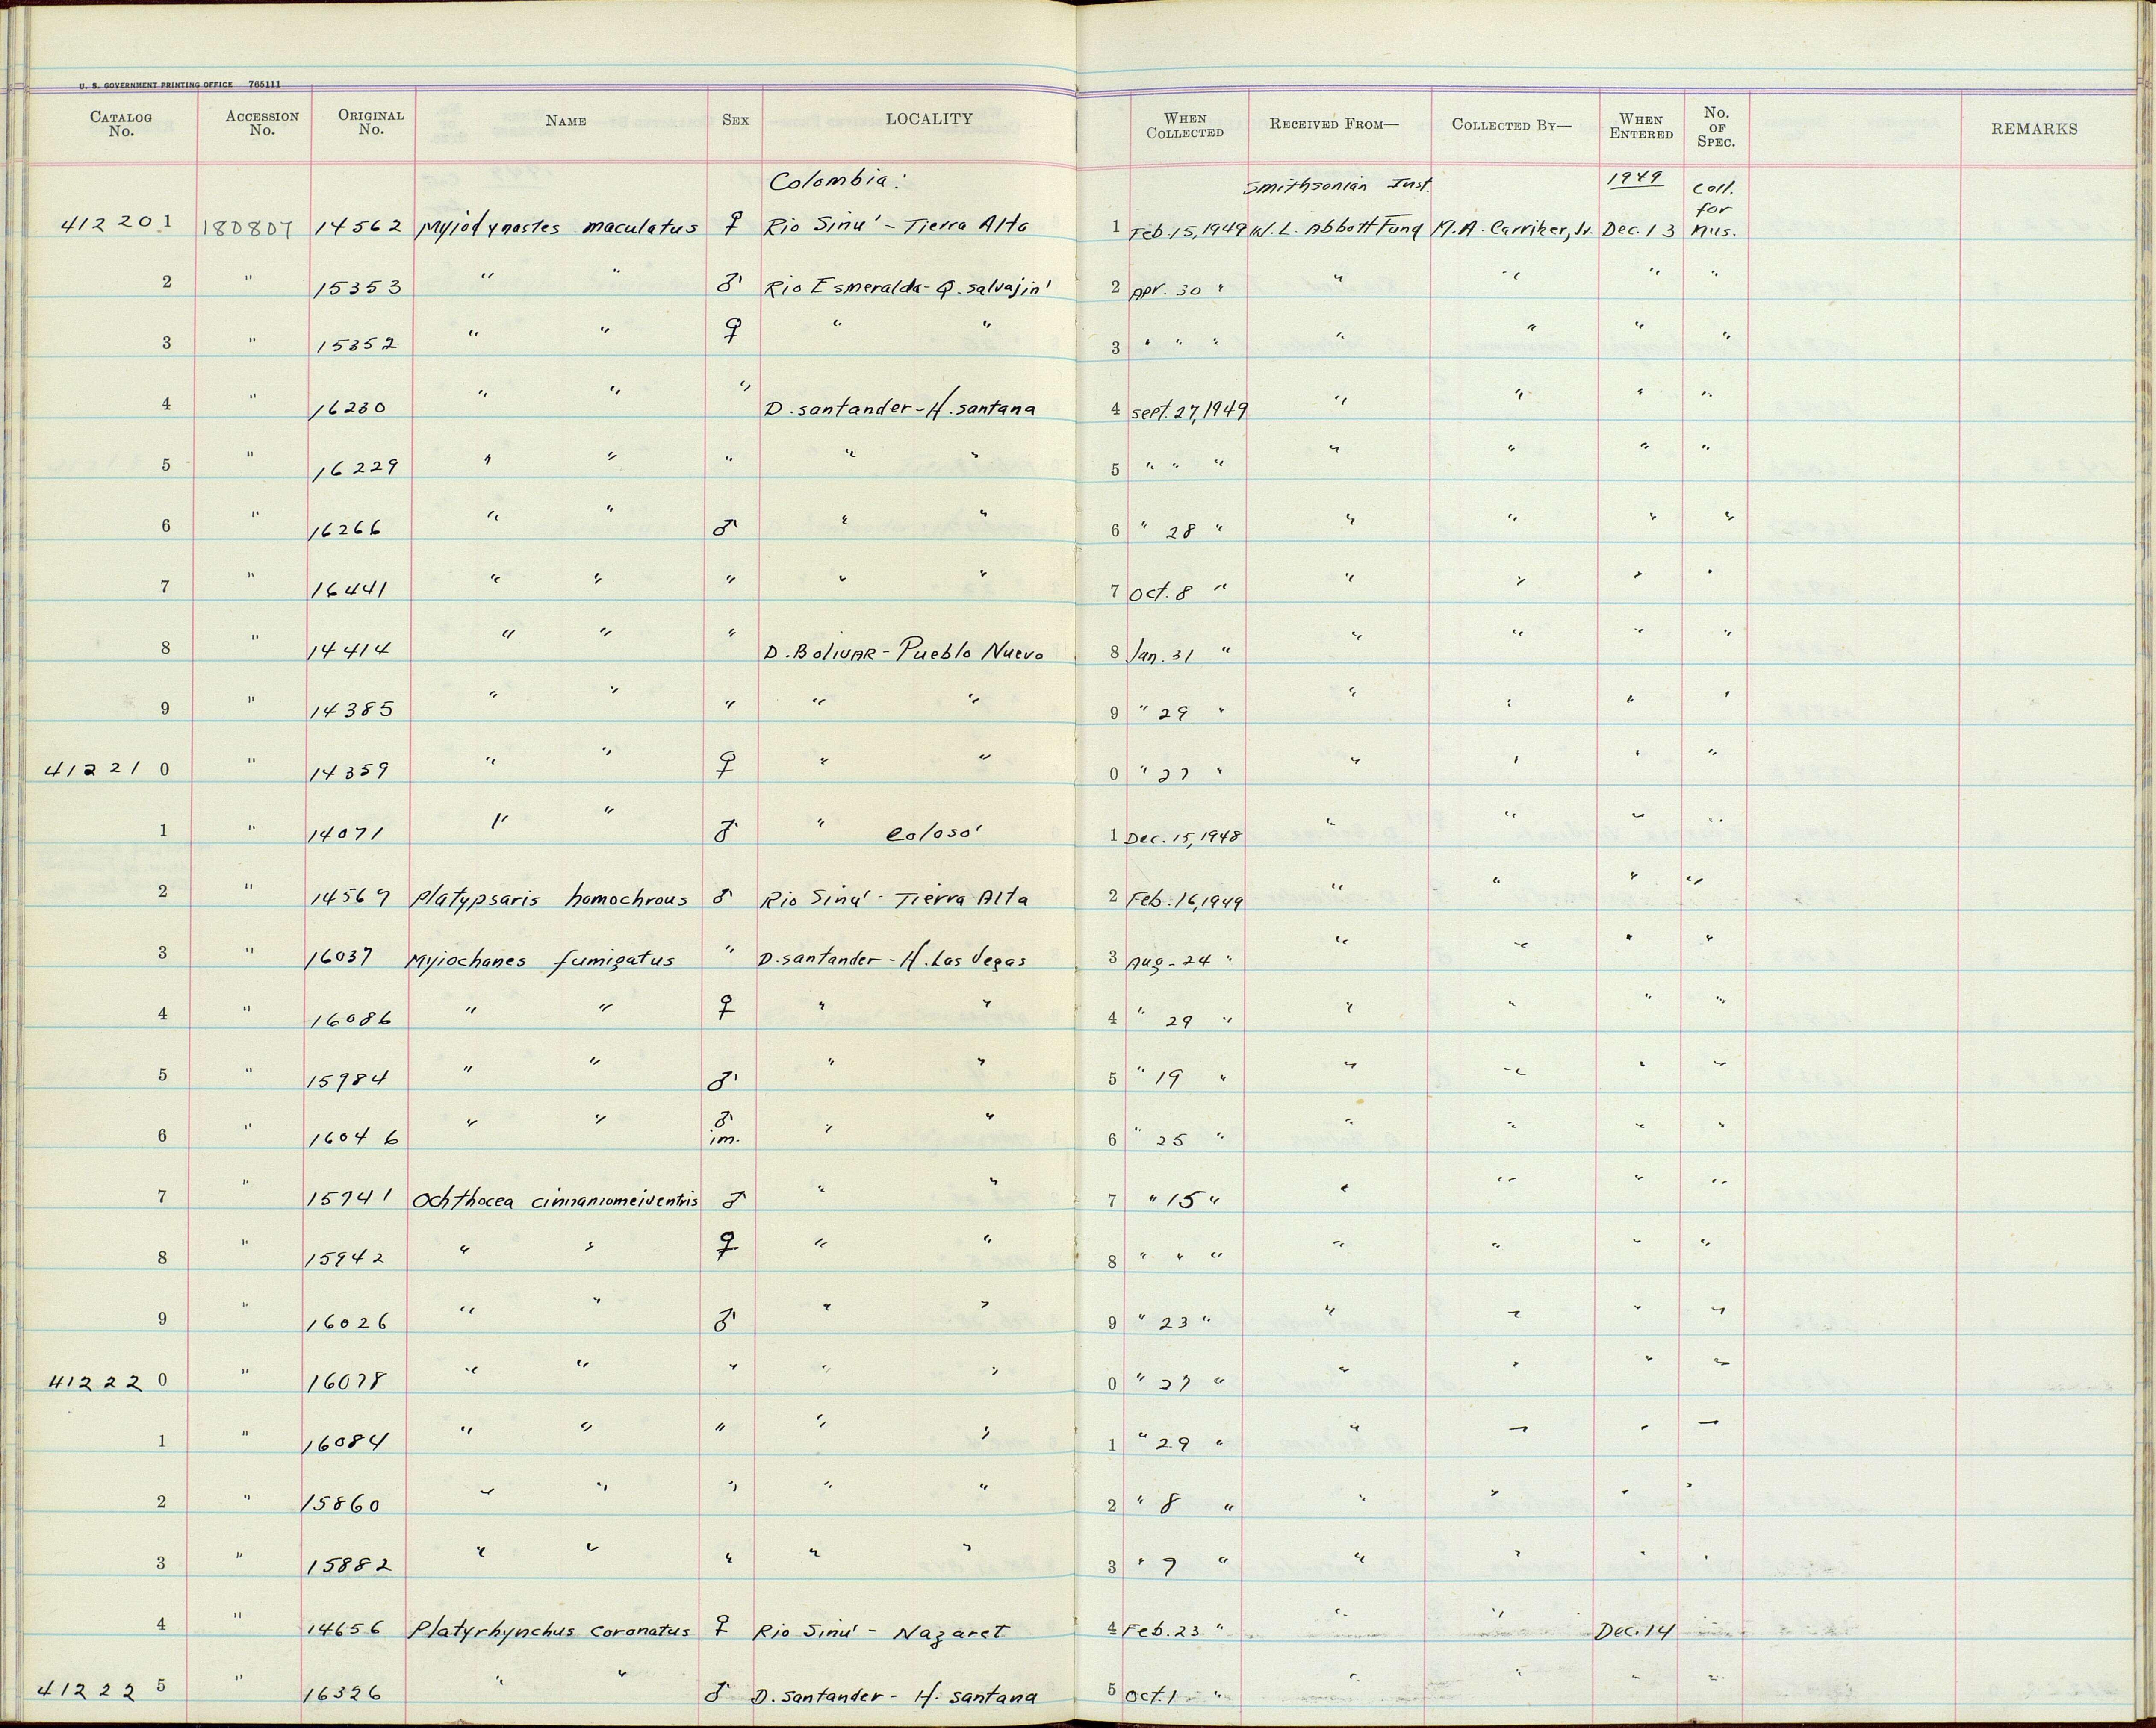 U. S. GOVERNMENT PRINTING OFFICE 765111
CATALOG No. ACCESSION No. ORIGINAL No. NAME SEX LOCALITY WHEN COLLECTED RECEIVED FROM— COLLECTED BY— WHEN ENTERED No. OF SPEC. REMARKS
Colombia: Smithsonian Inst. 1949 Coll. for
412201 180807 14562 Myiodynastes maculatus ♀ Rio Sinú - Tierra Alta 1 Feb. 15, 1949 W. L. Abbott Fund M. A. Carriker, Jr. Dec. 13 Mus.
2 " 15353 " " ♂ Rio Esmeralda - Q. salvajin' 2 Apr. 30 " " " " "
3 " 15352 " " ♀ " " 3 " " " " " " "
4 " 16230 " " " D. santander - H. santana 4 sept. 27, 1949 " " " "
5 " 16229 " " " " " 5 " " " " " " "
6 " 16266 " " ♂ " " 6 " 28 " " " " "
7 " 16441 " " " " " 7 Oct. 8 " " " " "
8 " 14414 " " " D. BoliVAR - Pueblo Nuevo 8 Jan. 31 " " " " "
9 " 14385 " " " " " 9 " 29 " " " " "
412210 " 14359 " " ♀ " " 0 " 27 " " " " "
1 " 14071 " " ♂ " Colosó 1 Dec. 15, 1948 " " " "
2 " 14567 Platypsaris homochrous ♂ Rio Sinú - Tierra Alta 2 Feb. 16, 1949 " " " "
3 " 16037 Myiochanes fumigatus " D. santander - H. Las Vegas 3 Aug. 24 " " " " "
4 " 16086 " " ♀ " " 4 " 29 " " " " "
5 " 15984 " " ♂ " " 5 " 19 " " " " "
6 " 16046 " " ♂ im. " " 6 " 25 " " " " "
7 " 15941 Ochthoeca cinnamomeiventris ♂ " " 7 " 15 " " " " "
8 " 15942 " " ♀ " " 8 " " " " " " "
9 " 16026 " " ♂ " " 9 " 23 " " " " "
412220 " 16078 " " " " " 0 " 27 " " " " "
1 " 16084 " " " " " 1 " 29 " " " " "
2 " 15860 " " " " " 2 " 8 " " " " "
3 " 15882 " " " " " 3 " 9 " " " " "
4 " 14656 Platyrhynchus coronatus ♀ Rio Sinú - Nazaret 4 Feb. 23 " " " Dec. 14
412225 " 16326 " " ♂ D. santander - H. santana 5 Oct. 1 " " " " "